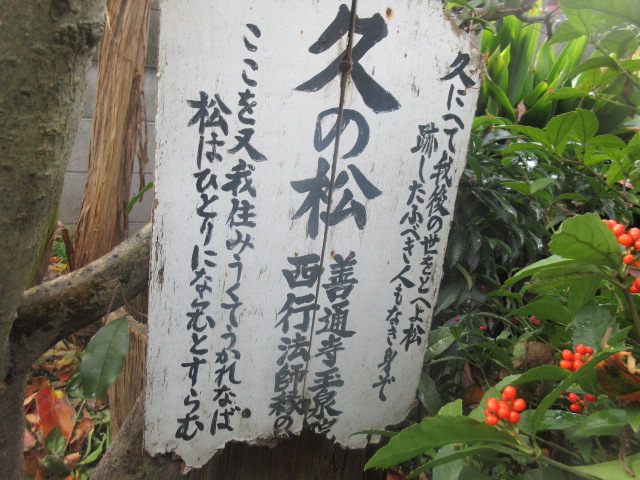 久にへて我後の世をとへよ松
跡したふべき人もなき身ぞ
久の松
善通寺玉泉
西行法師
ここを又我住みうくてうかれなば
松はひとりにならんとすらむ